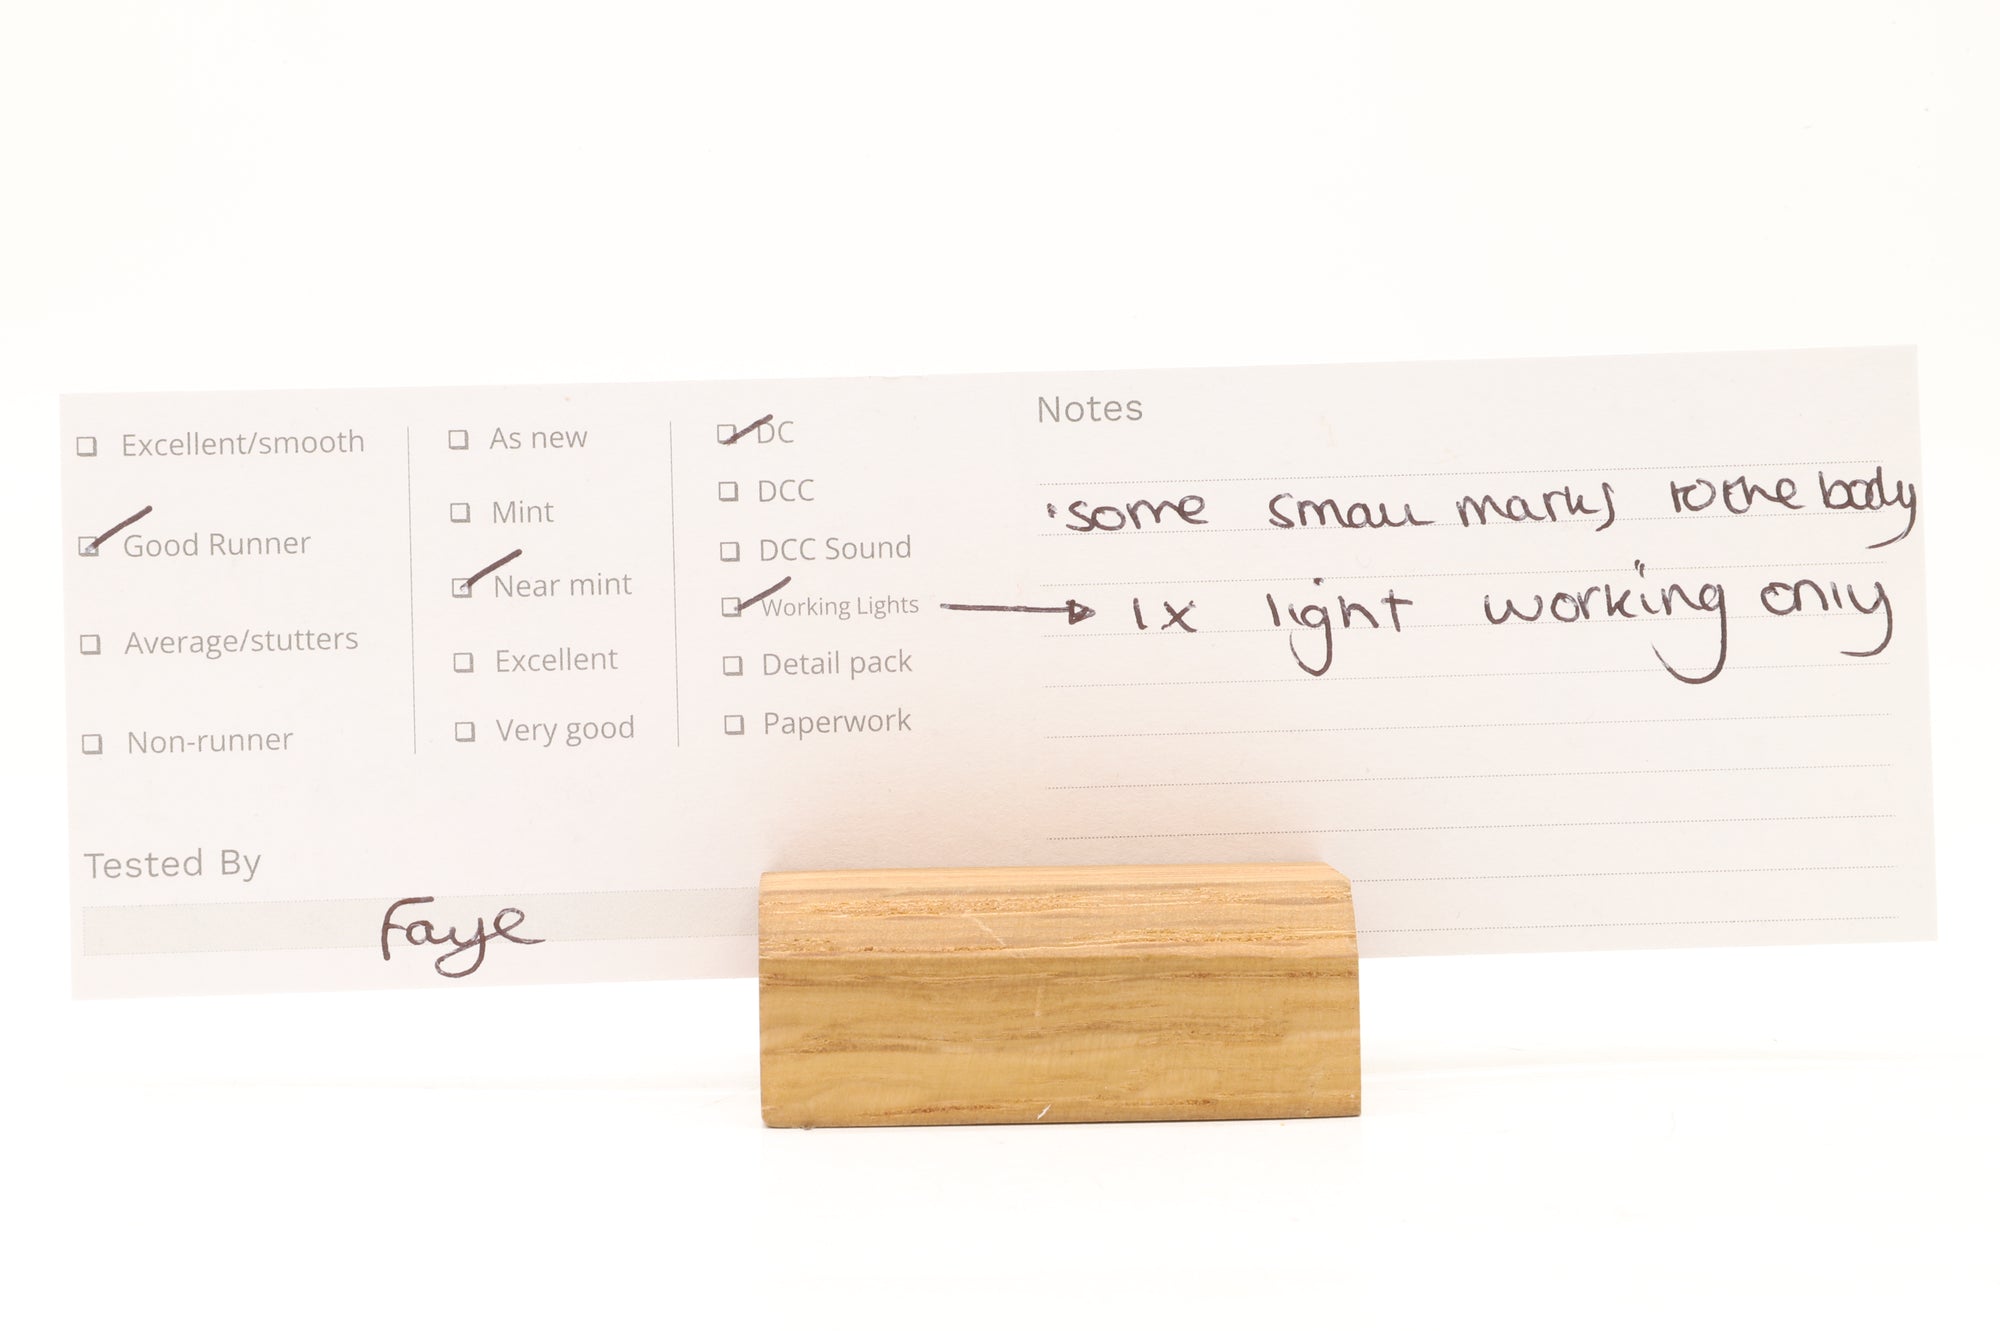 Excellent/smooth
Good Runner
Average/stutters
Non-runner
As new
Mint
Near mint
Excellent
Very good
DC
DCC
DCC Sound
Working Lights
Detail pack
Paperwork
Notes
·some small marks to the body
1x light working only
Tested By
Faye